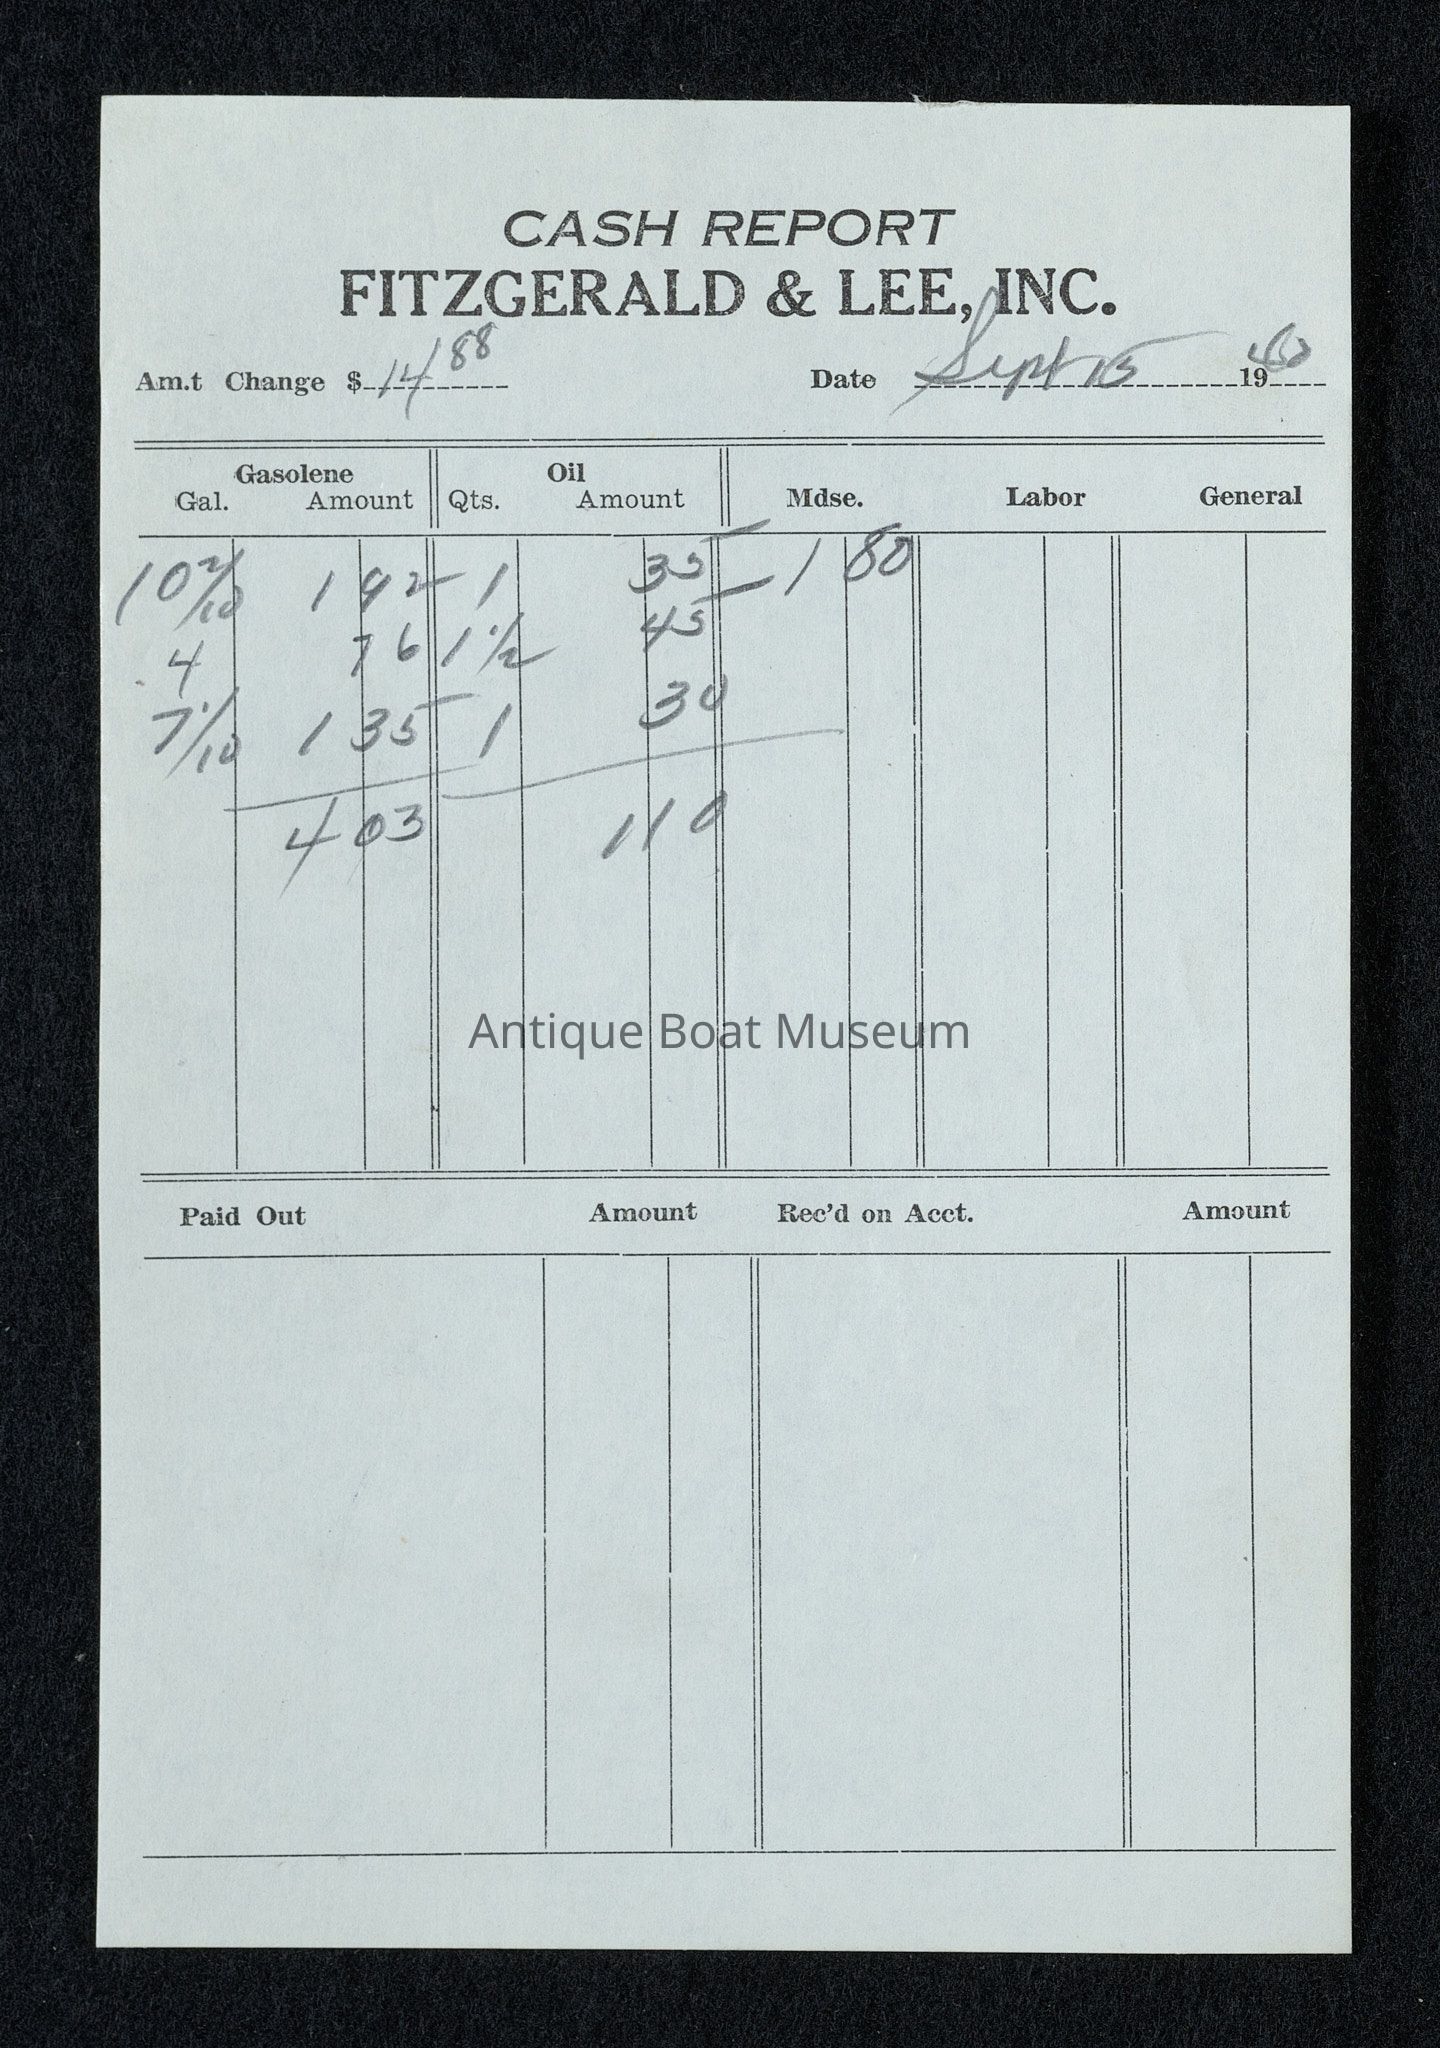 CASH REPORT
FITZGERALD & LEE, INC.
Am.t Change $ 14 88 Date Sept 15 19
Gasolene Oil
Gal. Amount Qts. Amount Mdse. Labor General
10 2/10 1 92 1 35 1 80
4 76 1 1/2 45
7 1/10 1 35 1 30
4 03 1 10
Antique Boat Museum
Paid Out Amount Rec'd on Acct. Amount